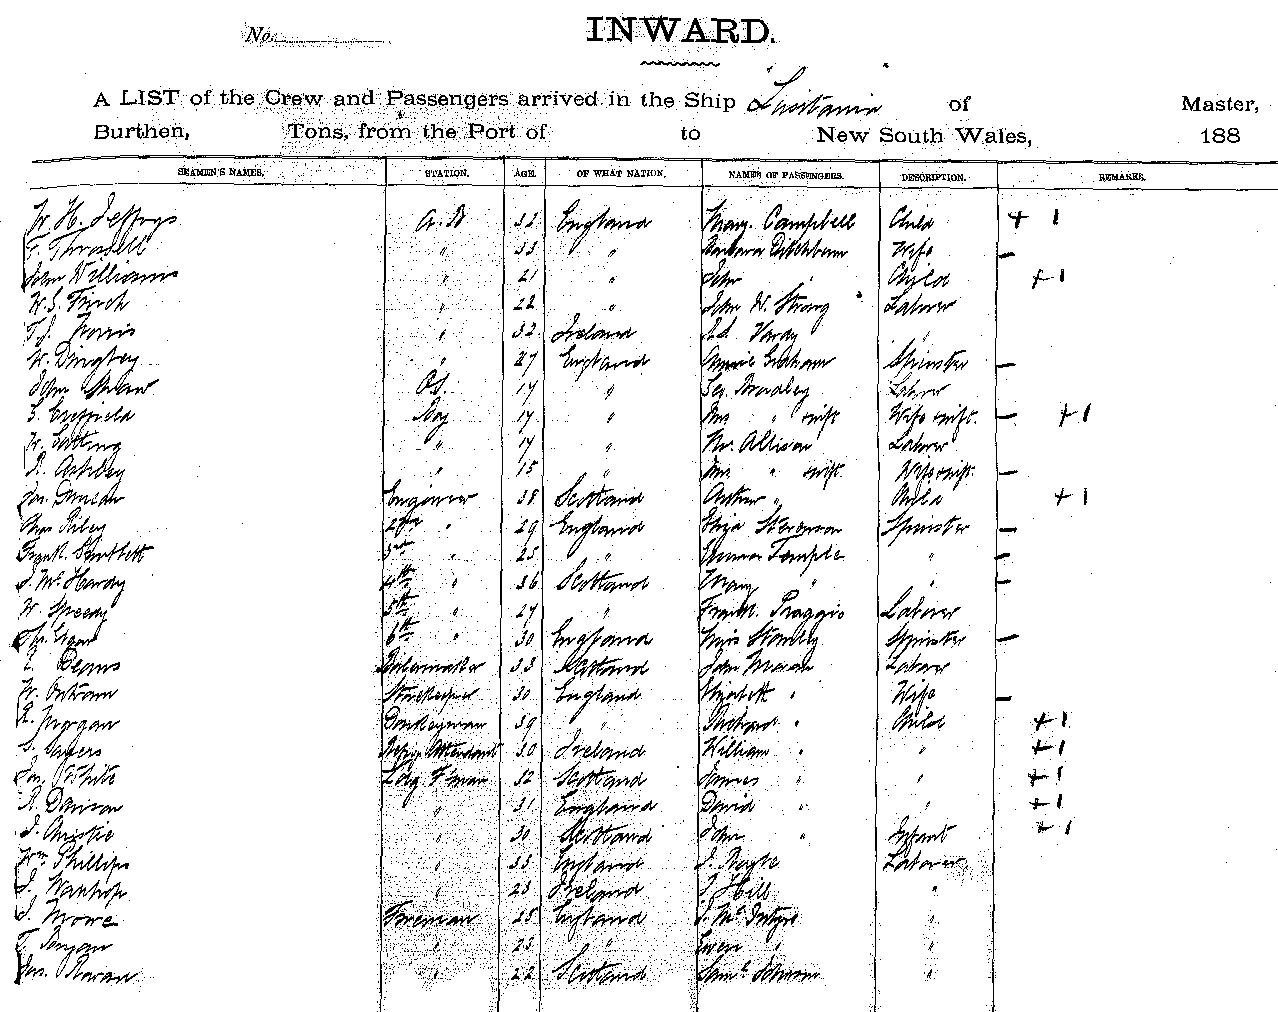 No.
INWARD.
A LIST of the Crew and Passengers arrived in the Ship "Lusitania" of Master,
Burthen, Tons, from the Port of to New South Wales, 188
SEAMEN'S NAMES. STATION. AGE. OF WHAT NATION. NAMES OF PASSENGERS. DESCRIPTION. REMARKS.
H. Jeffrys A.B 32 England Mary Campbell Child + 1
" 33 " Barbara Wife —
John Williams " 21 " John " Child + 1
W.S. Finch " 22 " John W. Strong Laborer
" 32 Ireland Hardy "
W. Dingley " 27 England Annie Graham Spinster —
John Shaw O.S. 17 " Geo. Bradley Laborer
Boy 17 " Mrs " & inft. Wife & inft. — + 1
" 17 " Allison Laborer
Ashley " 15 " Mrs " & inft. Wife & inft. —
Duncan Engineer 38 Scotland Arthur " Child + 1
Riley 2nd " 29 England Eliza Stevenson Spinster —
Frank Bartlett 3rd " 25 " Temple " —
McHardy 4th " 36 Scotland Mary " " —
W. Speedy 5th " 27 " Frank Laborer
6th " 30 England Miss Stanley Spinster —
Deans Boilermaker 33 Scotland John Moran Laborer
W. Storekeeper 30 England Elizabeth " Wife —
Morgan Donkeyman 39 " Richard " Child + 1
Attendant 30 Ireland William " " + 1
White Ldg F'man 32 Scotland James " " + 1
Dawson " 31 England David " " + 1
J. Christie " 30 Scotland John " Infant + 1
Wm. Phillips " 33 England Laborer
" 23 Ireland J. Hill "
Fireman 25 England McIntyre "
" 23 " Ewen " "
" 22 Scotland Saml. Johnson "